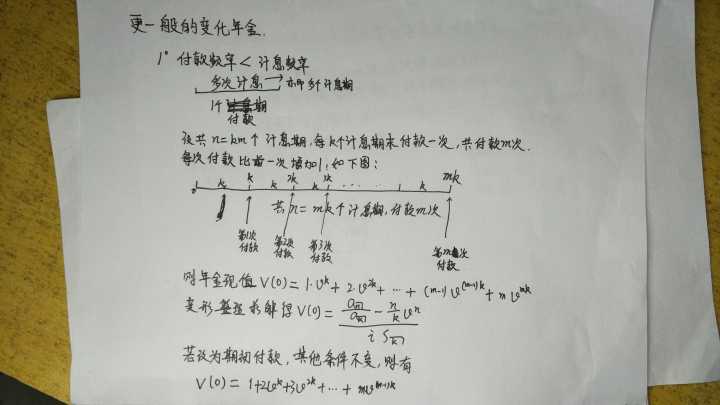 更一般的变化年金.
1° 付款频率 < 计息频率
多次计息 → 亦即多个计息期
1个
付款
设共 n=km 个计息期, 每k个计息期末付款一次, 共付款m次.
每次付款比前一次增加1, 如下图:
0 k k k 2k k 3k ...... k mk
共 n= mk个计息期, 付款m次
第1次付款 第2次付款 第3次付款 第m次付款
则年金现值 V(0) = 1·v^k + 2·v^{2k} + ... + (m-1)v^{(m-1)k} + m v^{mk}
变形整理求解得 V(0) = \frac{\frac{a_{\overline{n}|}}{a_{\overline{k}|}} - \frac{n}{k} v^n}{i s_{\overline{k}|}}
若改为期初付款, 其他条件不变, 则有
V(0) = 1+2v^k+3v^{2k}+...+ mv^{(m-1)k}